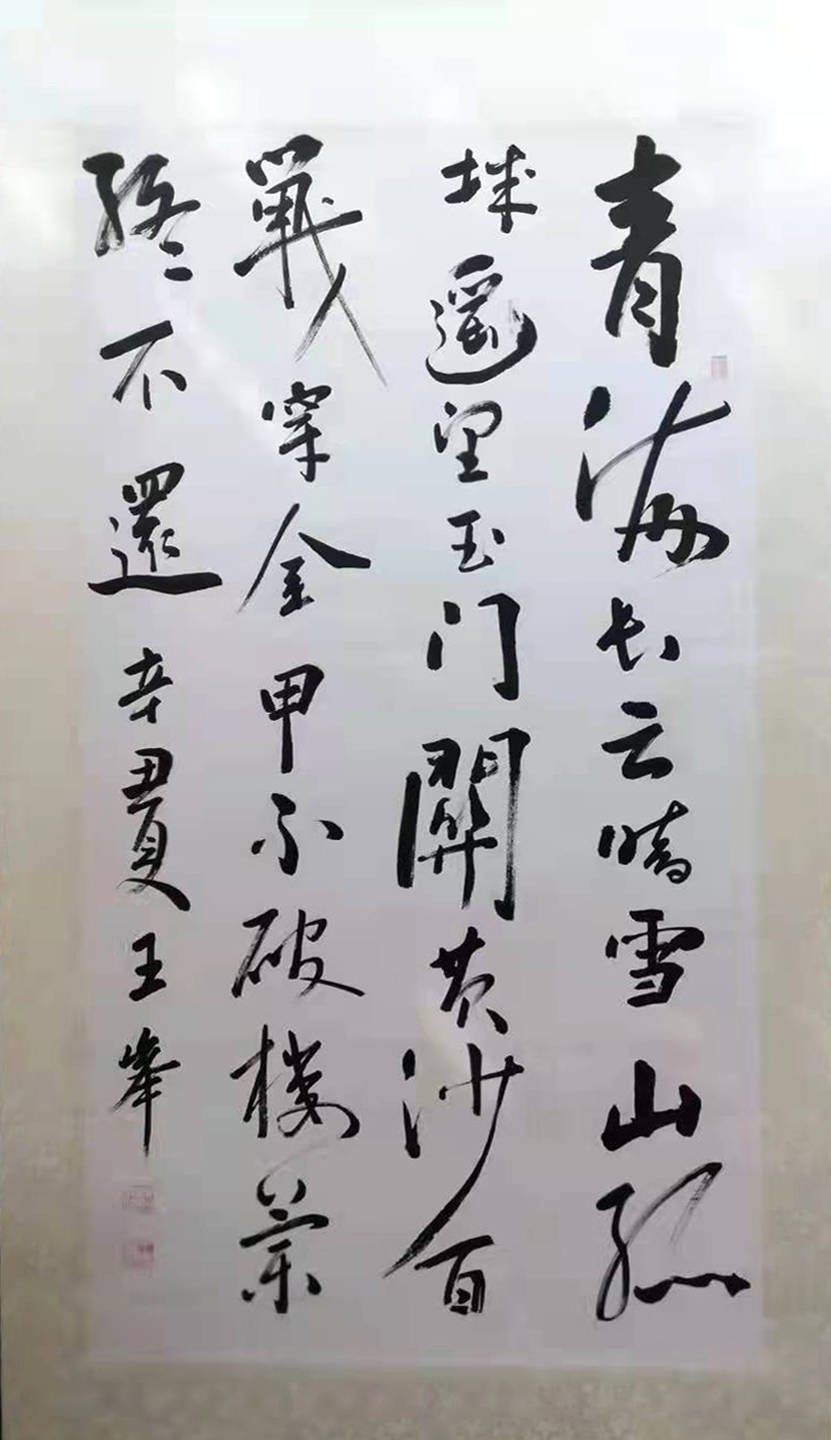 青海长云暗雪山孤
城遥望玉门關黄沙百
戰穿金甲不破楼蘭
终不還辛丑夏王峰